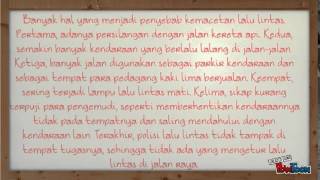 Banyak hal yang menjadi penyebab kemacetan lalu lintas.
Pertama, adanya persilangan dengan jalan kereta api. Kedua,
semakin banyak kendaraan yang berlalu lalang di jalan-jalan.
Ketiga, banyak jalan digunakan sebagai parkir kendaraan dan
sebagai tempat para pedagang kaki lima berjualan. Keempat,
sering terjadi lampu lalu lintas mati. Kelima, sikap kurang
terpuji para pengemudi, seperti memberhentikan kendaraannya
tidak pada tempatnya dan saling mendahului dengan
kendaraan lain. Terakhir, polisi lalu lintas tidak tampak di
tempat tugasnya, sehingga tidak ada yang mengatur lalu
lintas di jalan raya.